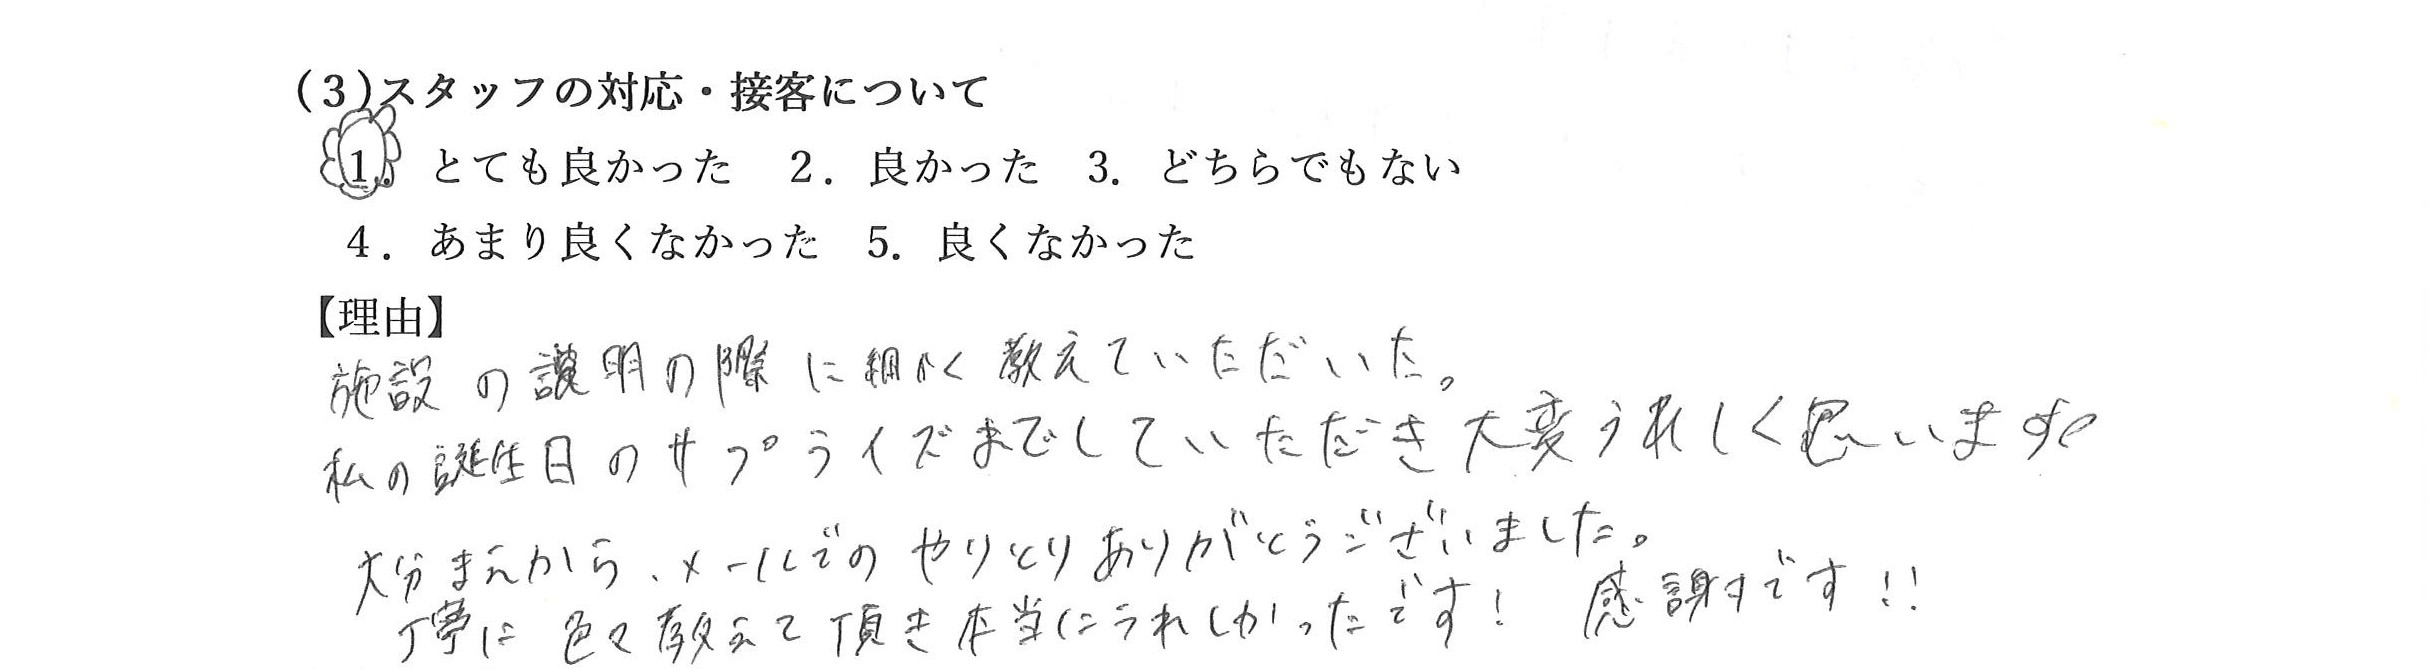 (3)スタッフの対応・接客について
1. とても良かった 2. 良かった 3. どちらでもない
4. あまり良くなかった 5. 良くなかった
【理由】
施設の説明の際に細かく教えていただいた。
私の誕生日のサプライズまでしていただき大変うれしく思います。
大分まえから、メールでのやりとりありがとうございました。
丁寧に色々教えて頂き本当にうれしかったです! 感謝です!!